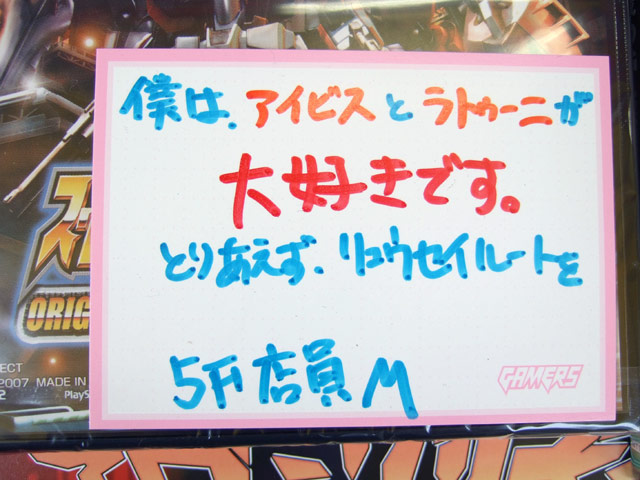 僕は、アイビスとラトゥーニが
大好きです。
とりあえず、リュウセイルートを
5F店員M
GAMERS
ORIG
ECT
2007 MADE IN
2
PlayS